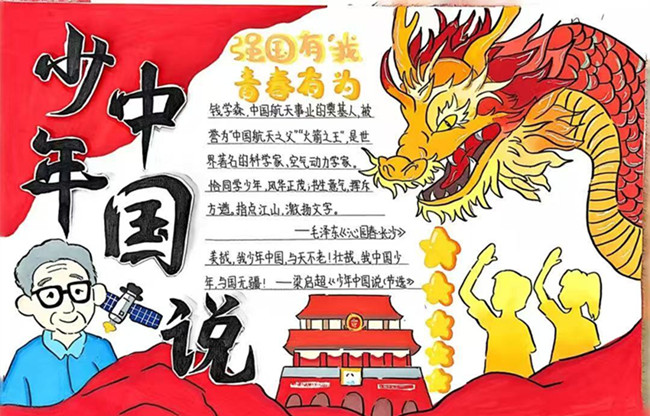 少年
中国说
强国有我
青春有为
钱学森,中国航天事业的奠基人,被
誉为“中国航天之父”“火箭之王”,是世
界著名的科学家、空气动力学家。
恰同学少年,风华正茂;书生意气,挥斥
方遒。指点江山,激扬文字。
——毛泽东《沁园春·长沙》
美哉,我少年中国,与天不老!壮哉,我中国少
年,与国无疆! ——梁启超《少年中国说(节选)》